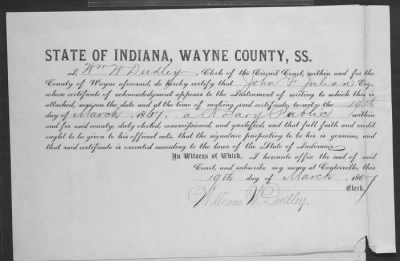 STATE OF INDIANA, WAYNE COUNTY, SS.
I, Wm W Dudley, Clerk of the Circuit Court, within and for the
County of Wayne aforesaid, do hereby certify that John F. Julian Esq.
whose certificate of acknowledgment appears to the Instrument of writing to which this is
attached, was, upon the date and at the time of making said certificate, to-wit, the 19th
day of March 1867, a Notary Public within
and for said county, duly elected, commissioned, and qualified, and that full faith and credit
ought to be given to his official acts; that the signature purporting to be his is genuine, and
that said certificate is executed according to the laws of the State of Indiana.
In Witness of Which, I hereunto affix the seal of said
Court, and subscribe my name at Centerville, this
19th day of March, 1867
William W. Dudley Clerk.